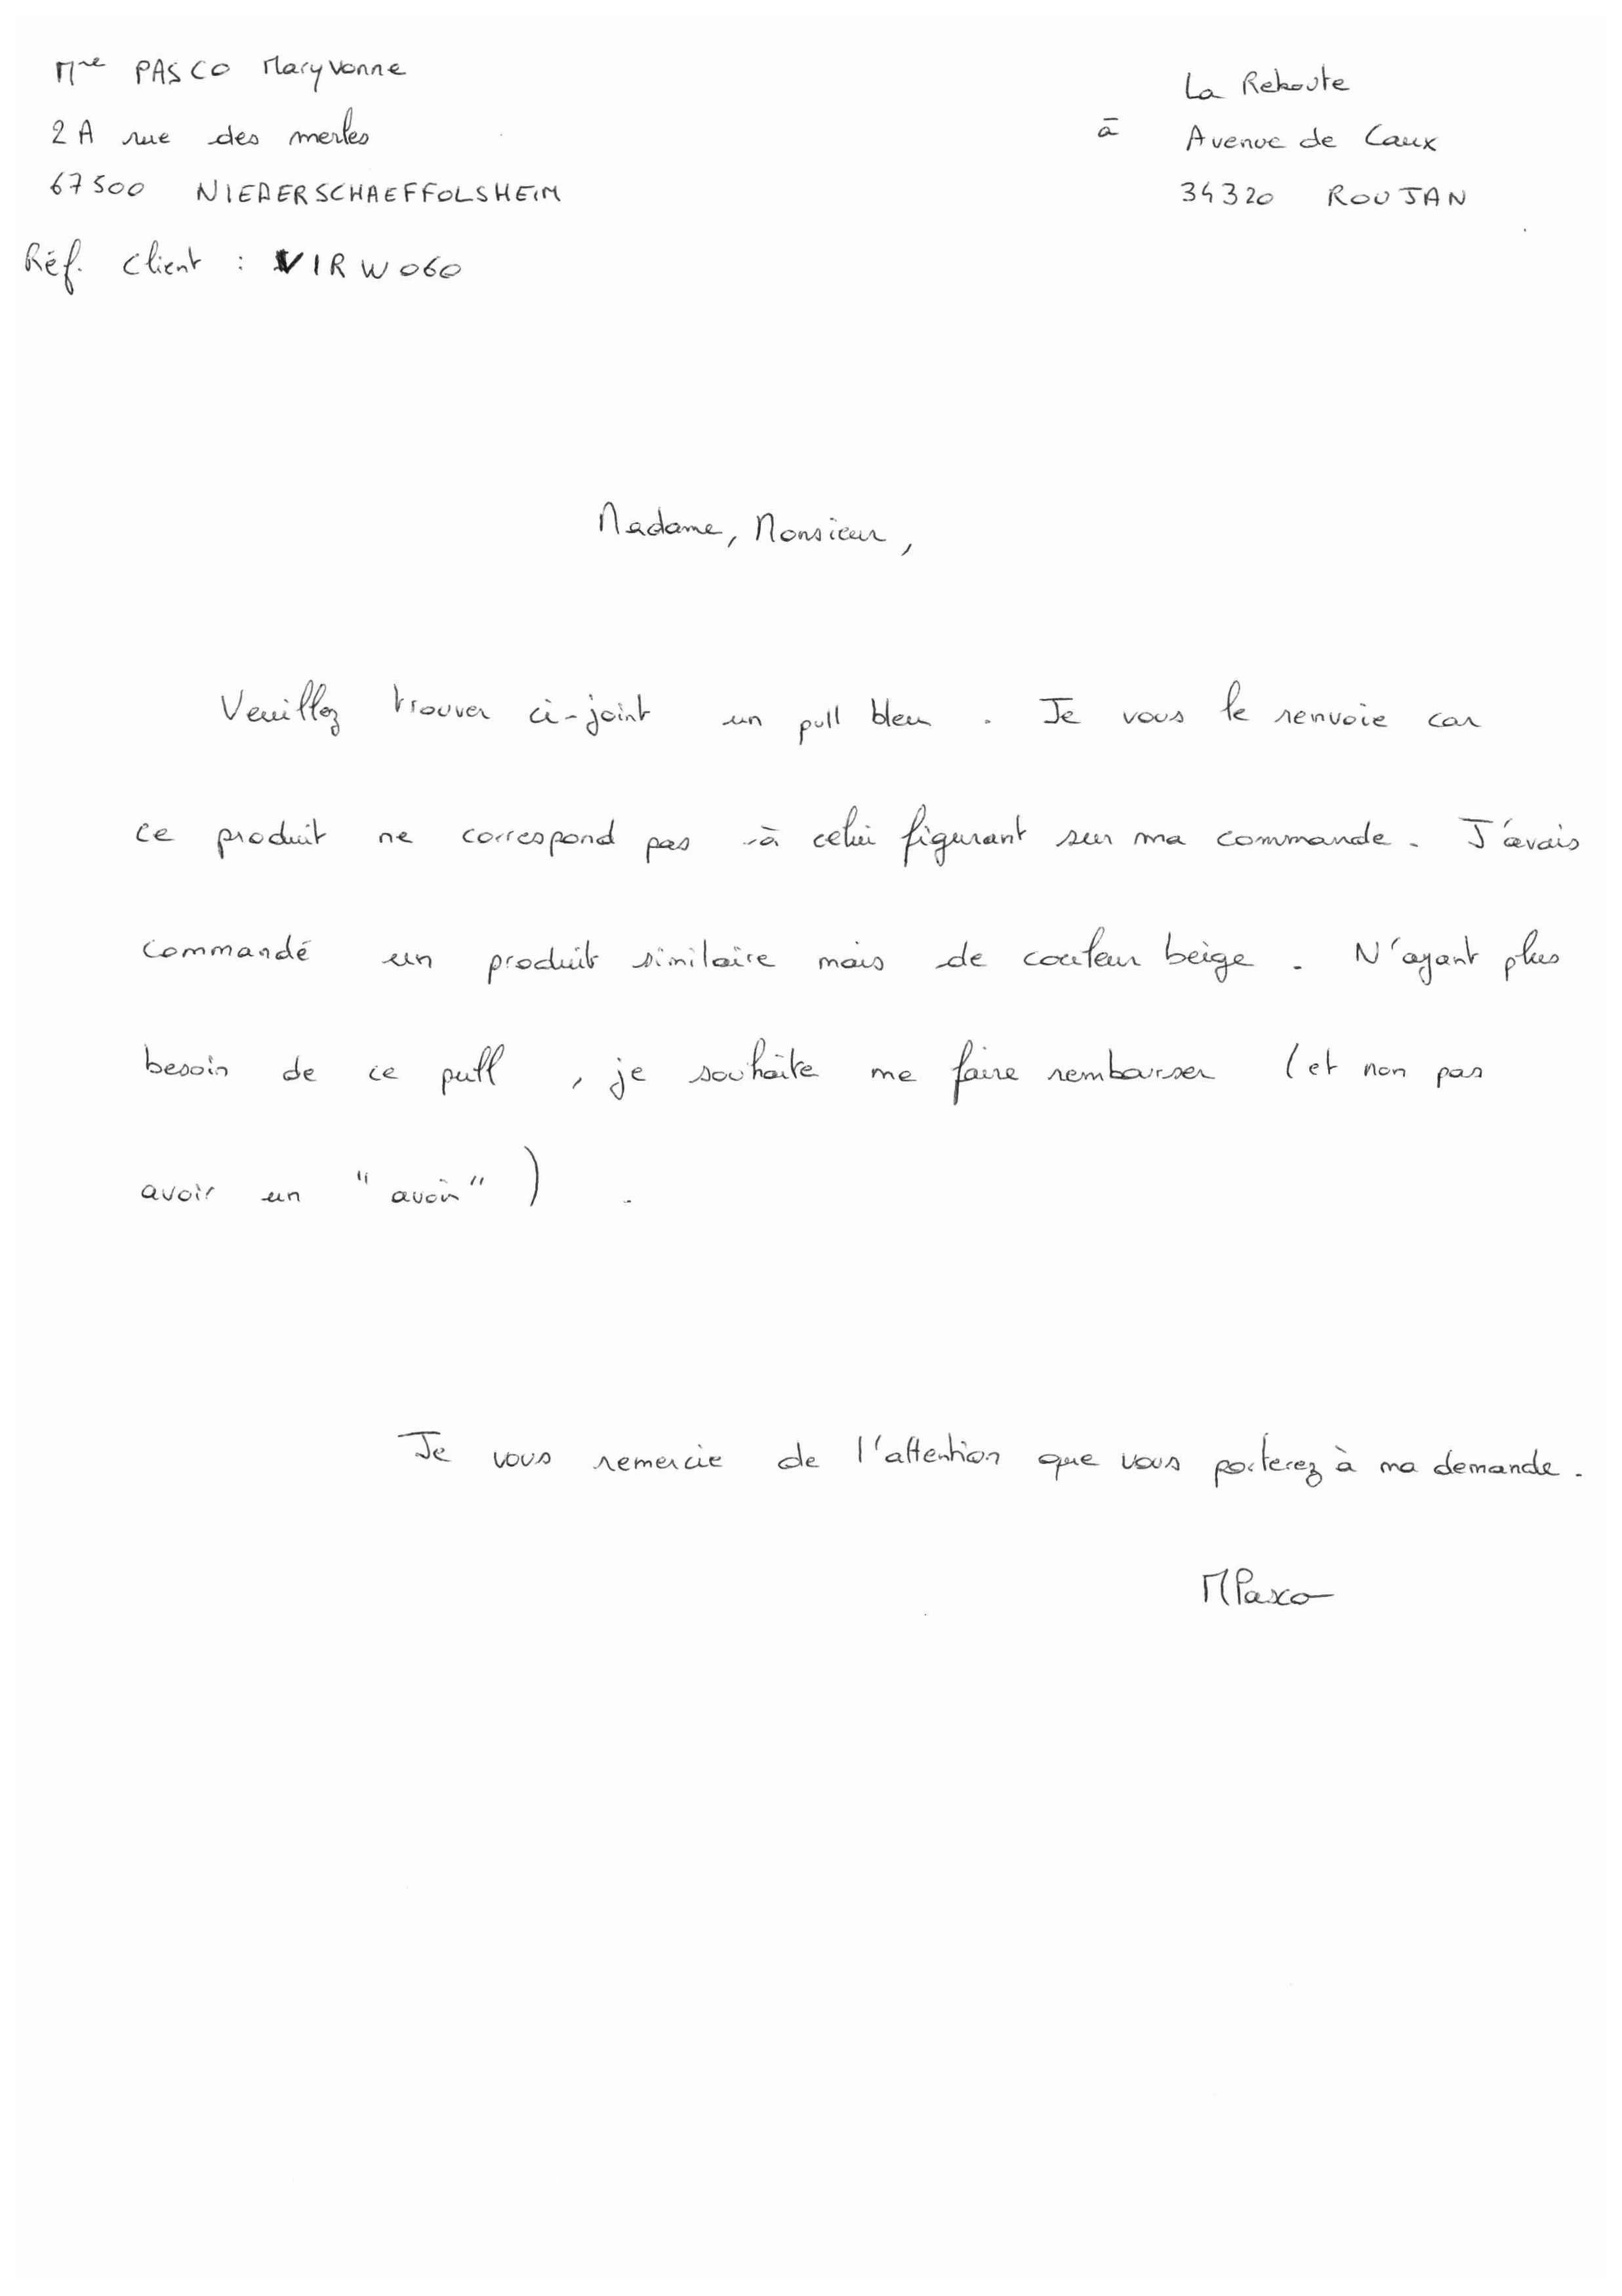 Mme PASCO Maryvonne
2A rue des merles
67500 NIEDERSCHAEFFOLSHEIM
Réf. client : VIRW060
La Reboute
à Avenue de Caux
34320 ROUJAN
Madame, Monsieur,
Veuillez trouver ci-joint un pull bleu. Je vous le renvoie car
ce produit ne correspond pas à celui figurant sur ma commande. J'avais
commandé un produit similaire mais de couleur beige. N'ayant plus
besoin de ce pull, je souhaite me faire rembourser (et non pas
avoir un "avoir").
Je vous remercie de l'attention que vous porterez à ma demande.
MPasco